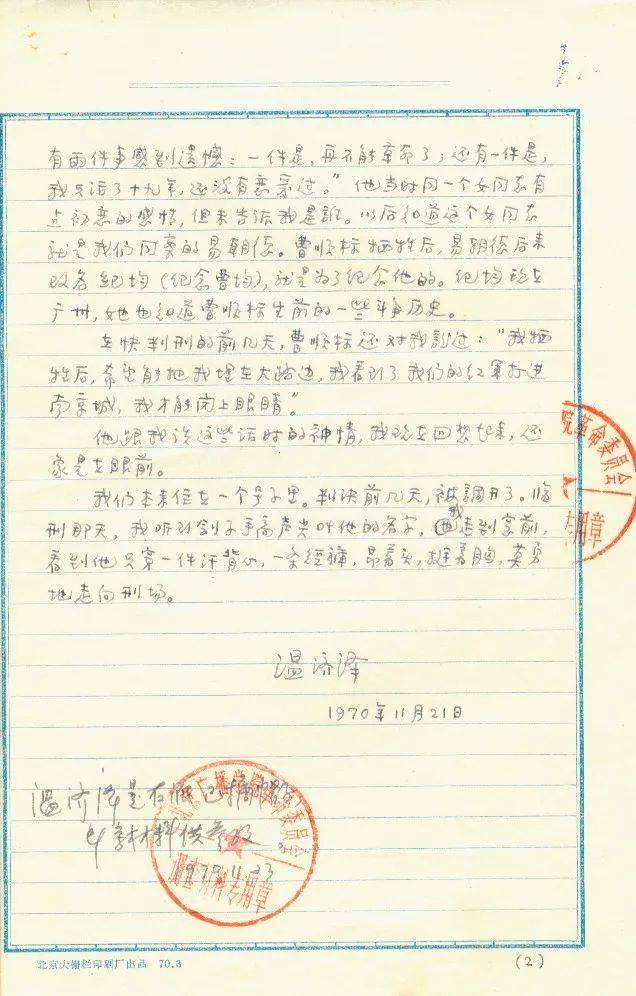 有两件事感到遗憾：一件是，再不能革命了；还有一件是，
我只活了十九年，还没有恋爱过。”他当时同一个女同志有
点初恋的感情，但未告诉我是谁。以后知道这个女同志
就是我们同案的易朝德。曹顺标牺牲后，易朝德后来
改名纪均（纪念曹均），就是为了纪念他的。纪均现在
广州，她也知道曹顺标生前的一些斗争历史。
在快判刑的前几天，曹顺标还对我説过：“我牺
牲后，希望能把我埋在大路边，我看到了我们的红军打进
南京城，我才能闭上眼睛”。
他跟我谈这些话时的神情，我现在回想起来，还
象是在眼前。
我们本来住在一个号子里。判决前几天，被調开了。临
刑那天，我听到刽子手高声尖叫他的名字，我走到窗前，
看到他只穿一件汗背心，一条短裤，昂着头，挺着胸，英勇
地走向刑场。
温济泽
1970年11月21日
温济泽是右派已摘帽
材料供参考
1970.11.23
广播学院革命委员会
专用章
院革命委员会
专用章
北京大栅栏印刷厂出品 70.3
(2)